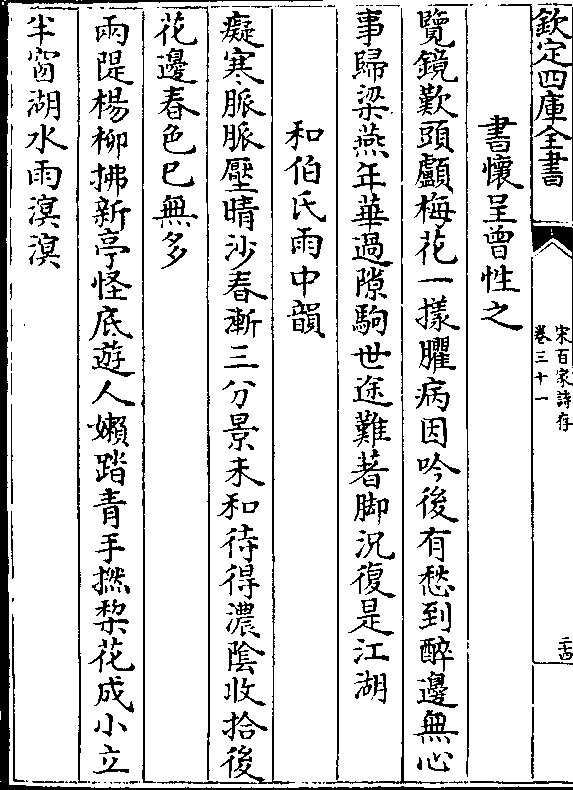 欽定四庫全書
宋百家詩存
卷三十一
二十四
書懷呈曾性之
覽鏡歎頭顱梅花一㨾臞病因吟後有愁到醉邊無心
事歸梁燕年華過隙駒世途難著脚況復是江湖
和伯氏雨中韻
癡寒脈脈壓晴沙春漸三分景未和待得濃陰收拾後
花邊春色已無多
兩隄楊柳拂新亭怪底遊人嬾踏青手撚棃花成小立
半窗湖水雨溟溟